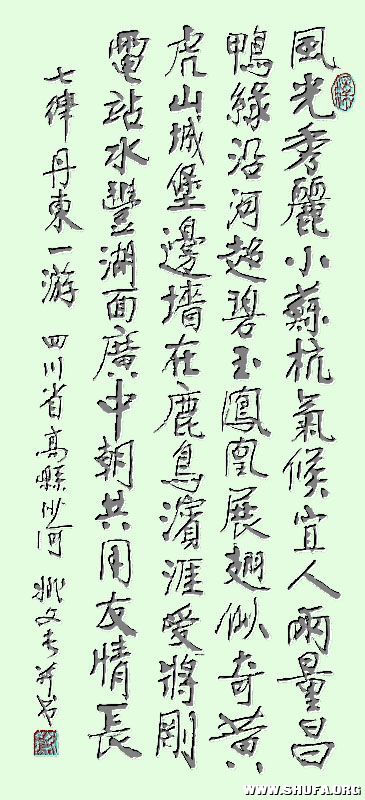 風光秀麗小蘇杭氣候宜人雨量昌
鴨緣沿河超碧玉鳳凰展翅似奇黄
虎山城堡邊墻在鹿鳥濱涯愛將剛
電站水豐湖面廣中朝共用友情長
七律 丹東一游 四川省高縣沙河
WWW.SHUFA.ORG